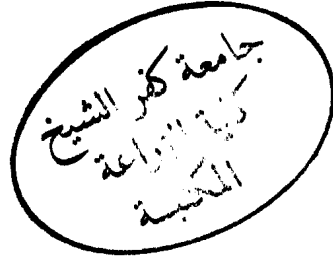 جامعة كفر الشيخ
كلية الزراعة
المكتبة